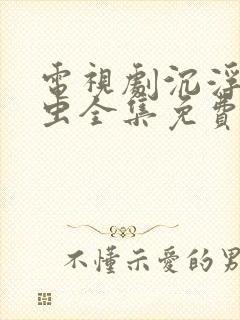 電視劇沉浮
虫全集免費
不懂示愛的男